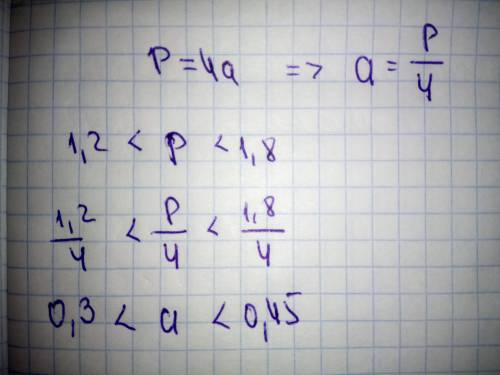 P = 4a => a = P/4
1,2 < P < 1,8
1,2/4 < P/4 < 1,8/4
0,3 < a < 0,45